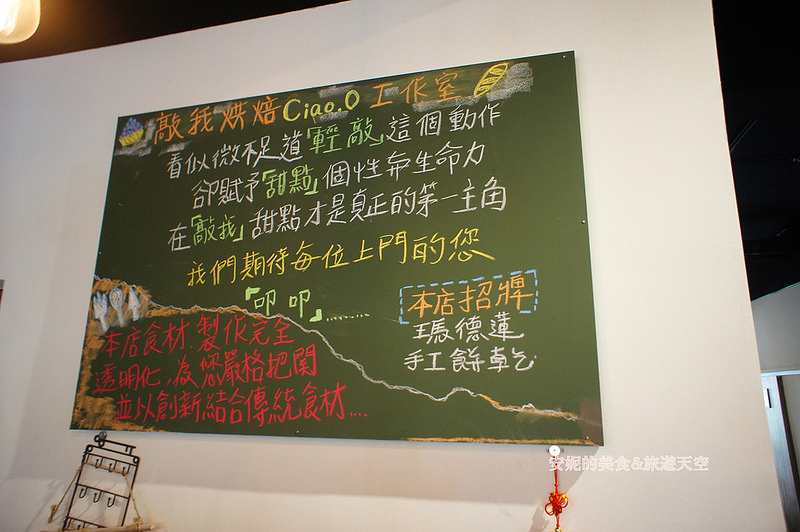 敲我烘焙Ciao.O工作室
看似微不足道「輕敲」這個動作
卻賦予「甜點」個性和生命力
在「敲我」甜點才是真正的第一主角
我們期待每位上門的您
「叩叩」……
本店招牌
瑪德蓮
手工餅乾
本店食材.製作完全
透明化,為您嚴格把關
並以創新,結合傳統食材...
安妮的美食&旅遊天空